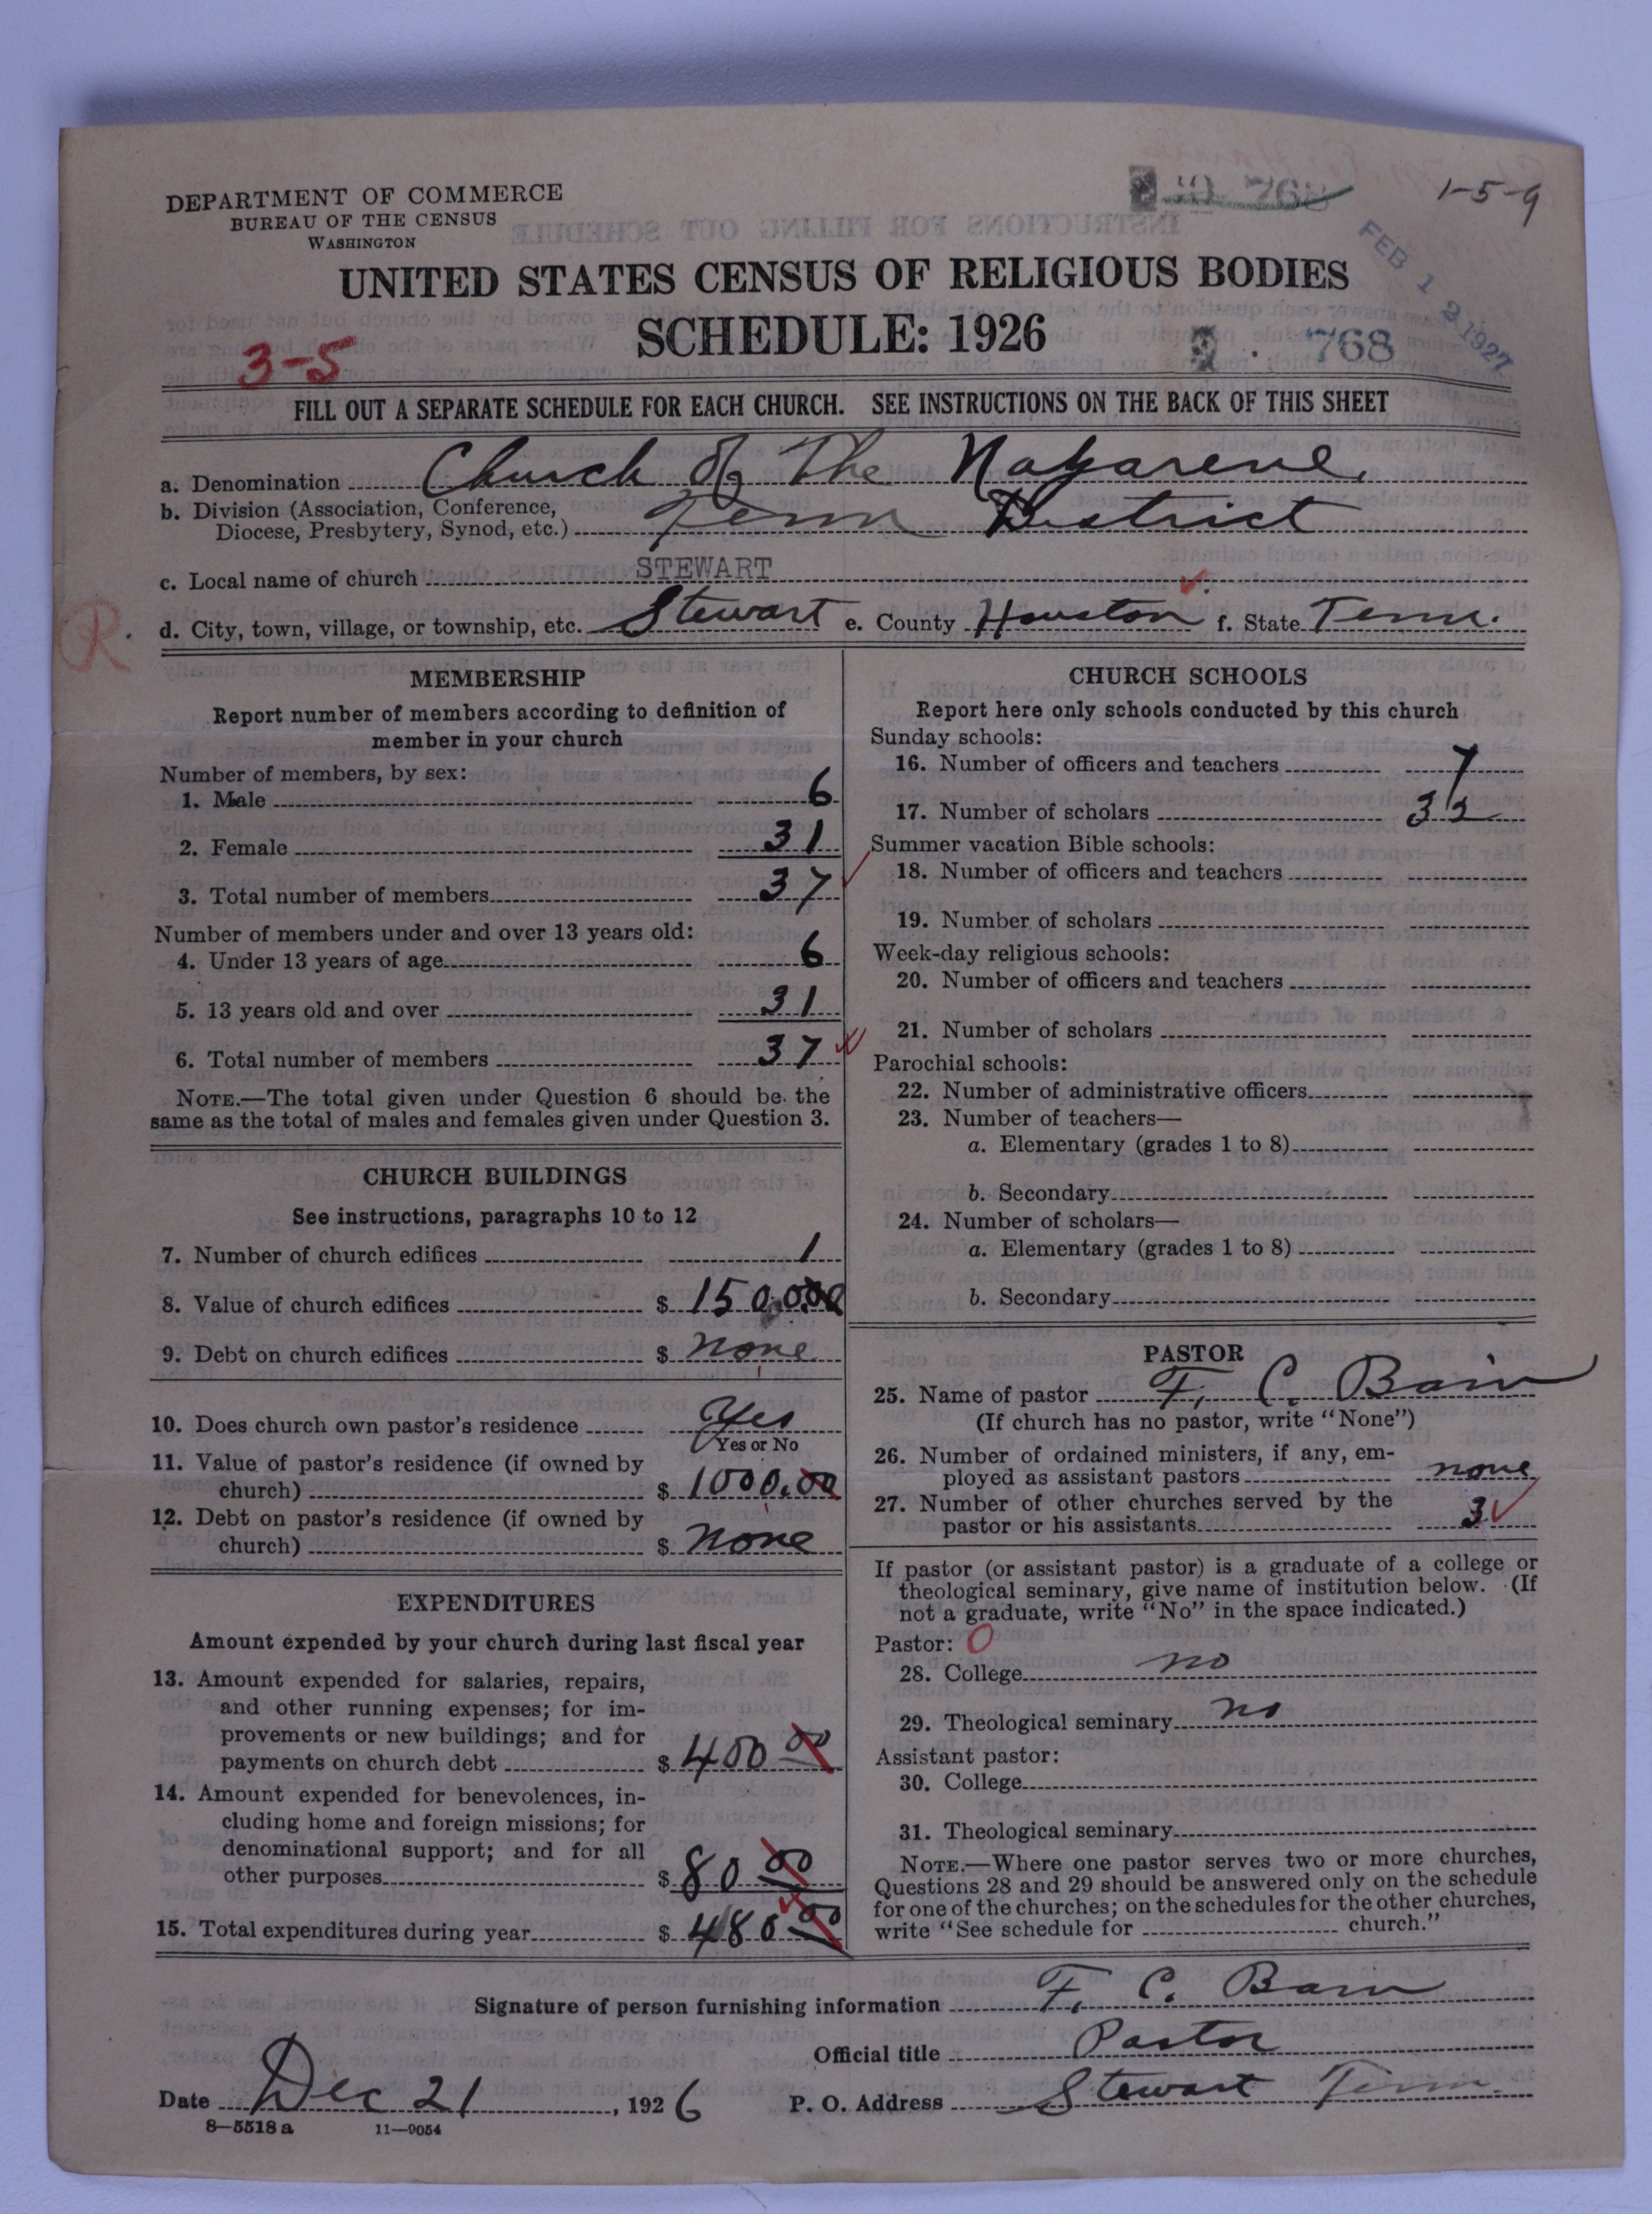 DEPARTMENT OF COMMERCE
BUREAU OF THE CENSUS
WASHINGTON
768
1-5-9
UNITED STATES CENSUS OF RELIGIOUS BODIES
FEB 12 1927
SCHEDULE: 1926
768
3-5
FILL OUT A SEPARATE SCHEDULE FOR EACH CHURCH. SEE INSTRUCTIONS ON THE BACK OF THIS SHEET
a. Denomination Church of The Nazarene.
b. Division (Association, Conference,
Diocese, Presbytery, Synod, etc.) Tenn District
c. Local name of church STEWART
R.
d. City, town, village, or township, etc. Stewart e. County Houston f. State Tenn.
MEMBERSHIP
Report number of members according to definition of
member in your church
Number of members, by sex:
1. Male 6
2. Female 31
3. Total number of members 37
Number of members under and over 13 years old:
4. Under 13 years of age 6
5. 13 years old and over 31
6. Total number of members 37
NOTE.—The total given under Question 6 should be the
same as the total of males and females given under Question 3.
CHURCH BUILDINGS
See instructions, paragraphs 10 to 12
7. Number of church edifices 1
8. Value of church edifices $ 150
9. Debt on church edifices $ none
10. Does church own pastor's residence Yes
Yes or No
11. Value of pastor's residence (if owned by
church) $ 1000.00
12. Debt on pastor's residence (if owned by
church) $ none
EXPENDITURES
Amount expended by your church during last fiscal year
13. Amount expended for salaries, repairs,
and other running expenses; for im-
provements or new buildings; and for
payments on church debt $ 400 00
14. Amount expended for benevolences, in-
cluding home and foreign missions; for
denominational support; and for all
other purposes $ 80 00
15. Total expenditures during year $ 480 00
CHURCH SCHOOLS
Report here only schools conducted by this church
Sunday schools:
16. Number of officers and teachers 7
17. Number of scholars 32
Summer vacation Bible schools:
18. Number of officers and teachers
19. Number of scholars
Week-day religious schools:
20. Number of officers and teachers
21. Number of scholars
Parochial schools:
22. Number of administrative officers
23. Number of teachers—
a. Elementary (grades 1 to 8)
b. Secondary
24. Number of scholars—
a. Elementary (grades 1 to 8)
b. Secondary
PASTOR
25. Name of pastor F. C. Bain
(If church has no pastor, write "None")
26. Number of ordained ministers, if any, em-
ployed as assistant pastors none
27. Number of other churches served by the
pastor or his assistants 3
If pastor (or assistant pastor) is a graduate of a college or
theological seminary, give name of institution below. (If
not a graduate, write "No" in the space indicated.)
Pastor: O
28. College no
29. Theological seminary no
Assistant pastor:
30. College
31. Theological seminary
NOTE.—Where one pastor serves two or more churches,
Questions 28 and 29 should be answered only on the schedule
for one of the churches; on the schedules for the other churches,
write "See schedule for church."
Signature of person furnishing information F. C. Bain
Official title Pastor
Date Dec 21, 1926 P. O. Address Stewart Tenn.
8—5518 a 11—9054